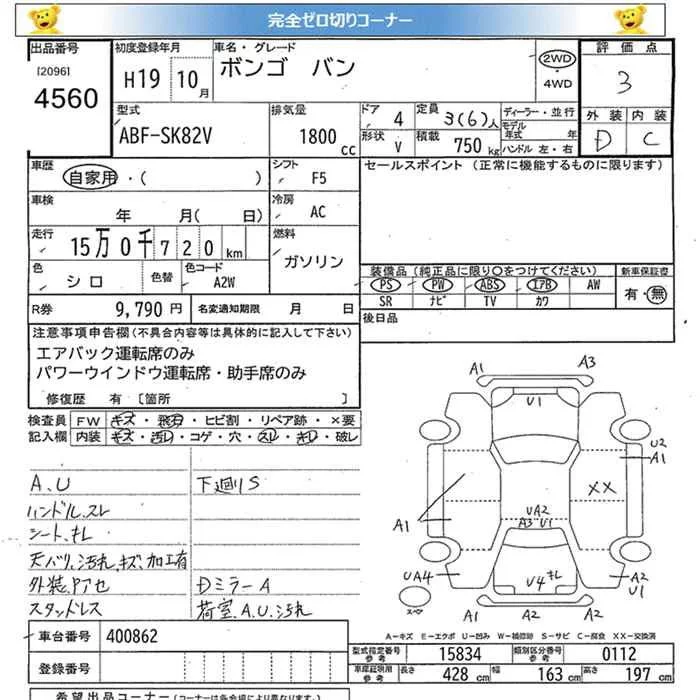 完全ゼロ切りコーナー
出品番号
[2096]
4560
初度登録年月
H19 10月
車名・グレード
ボンゴ バン
2WD
・
4WD
評価点
3
外装 内装
D C
型式
ABF-SK82V
排気量
1800 cc
ドア 4
形状 V
定員 3(6)人
積載 750 kg
ディーラー・並行
モデル年式 年
ハンドル 左・右
車歴
自家用・( )
シフト
F5
セールスポイント (正常に機能するものに限ります)
車検
年 月( 日)
冷房
AC
走行
15万0千720km
燃料
ガソリン
色
シロ
色替
色コード
A2W
装備品 (純正品に限り○をつけてください)
PS PW ABS エアB AW
SR ナビ TV カワ
新車保証書
有・無
R券 9,790円
名変通知期限 月 日
後日品
注意事項申告欄 (不具合内容等は具体的に記入して下さい)
エアバック運転席のみ
パワーウインドウ運転席・助手席のみ
修復歴 有 〔箇所 〕
検査員記入欄
FW キズ・飛石・ヒビ割・リペア跡・×要
内装 キズ・汚れ・コゲ・穴・スレ・キレ・破レ
A、U
ハンドル、スレ
シート、キレ
天バリ、汚れ、キズ、加工有
外装、アセ
スタッドレス
下廻りS
Dミラー A
荷室、A、U、汚れ
A1 A3
U1
U2
A1
XX
A1
UA2
A3 U1
UA4
U4 キレ
A2
U1
A1 A2 A2
スペア
A-キズ E-エクボ U-凹み W-補修跡 S-サビ C-腐食 XX-交換済
車台番号 400862
登録番号
型式指定番号 参考 15834
類別区分番号 参考 0112
車庫証明用 参考
長さ 428 cm
幅 163 cm
高さ 197 cm
希望出品コーナー (コーナーは各会場により異なります)